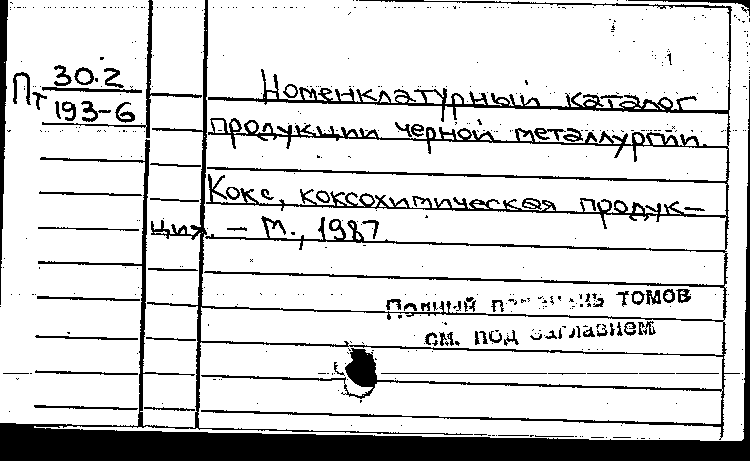 Пт 30.2
193-6
Номенклатурный каталог
продукции черной металлургии.
Кокс, коксохимическая продук-
ция. – М., 1987.
Полный перечень томов
см. под заглавием